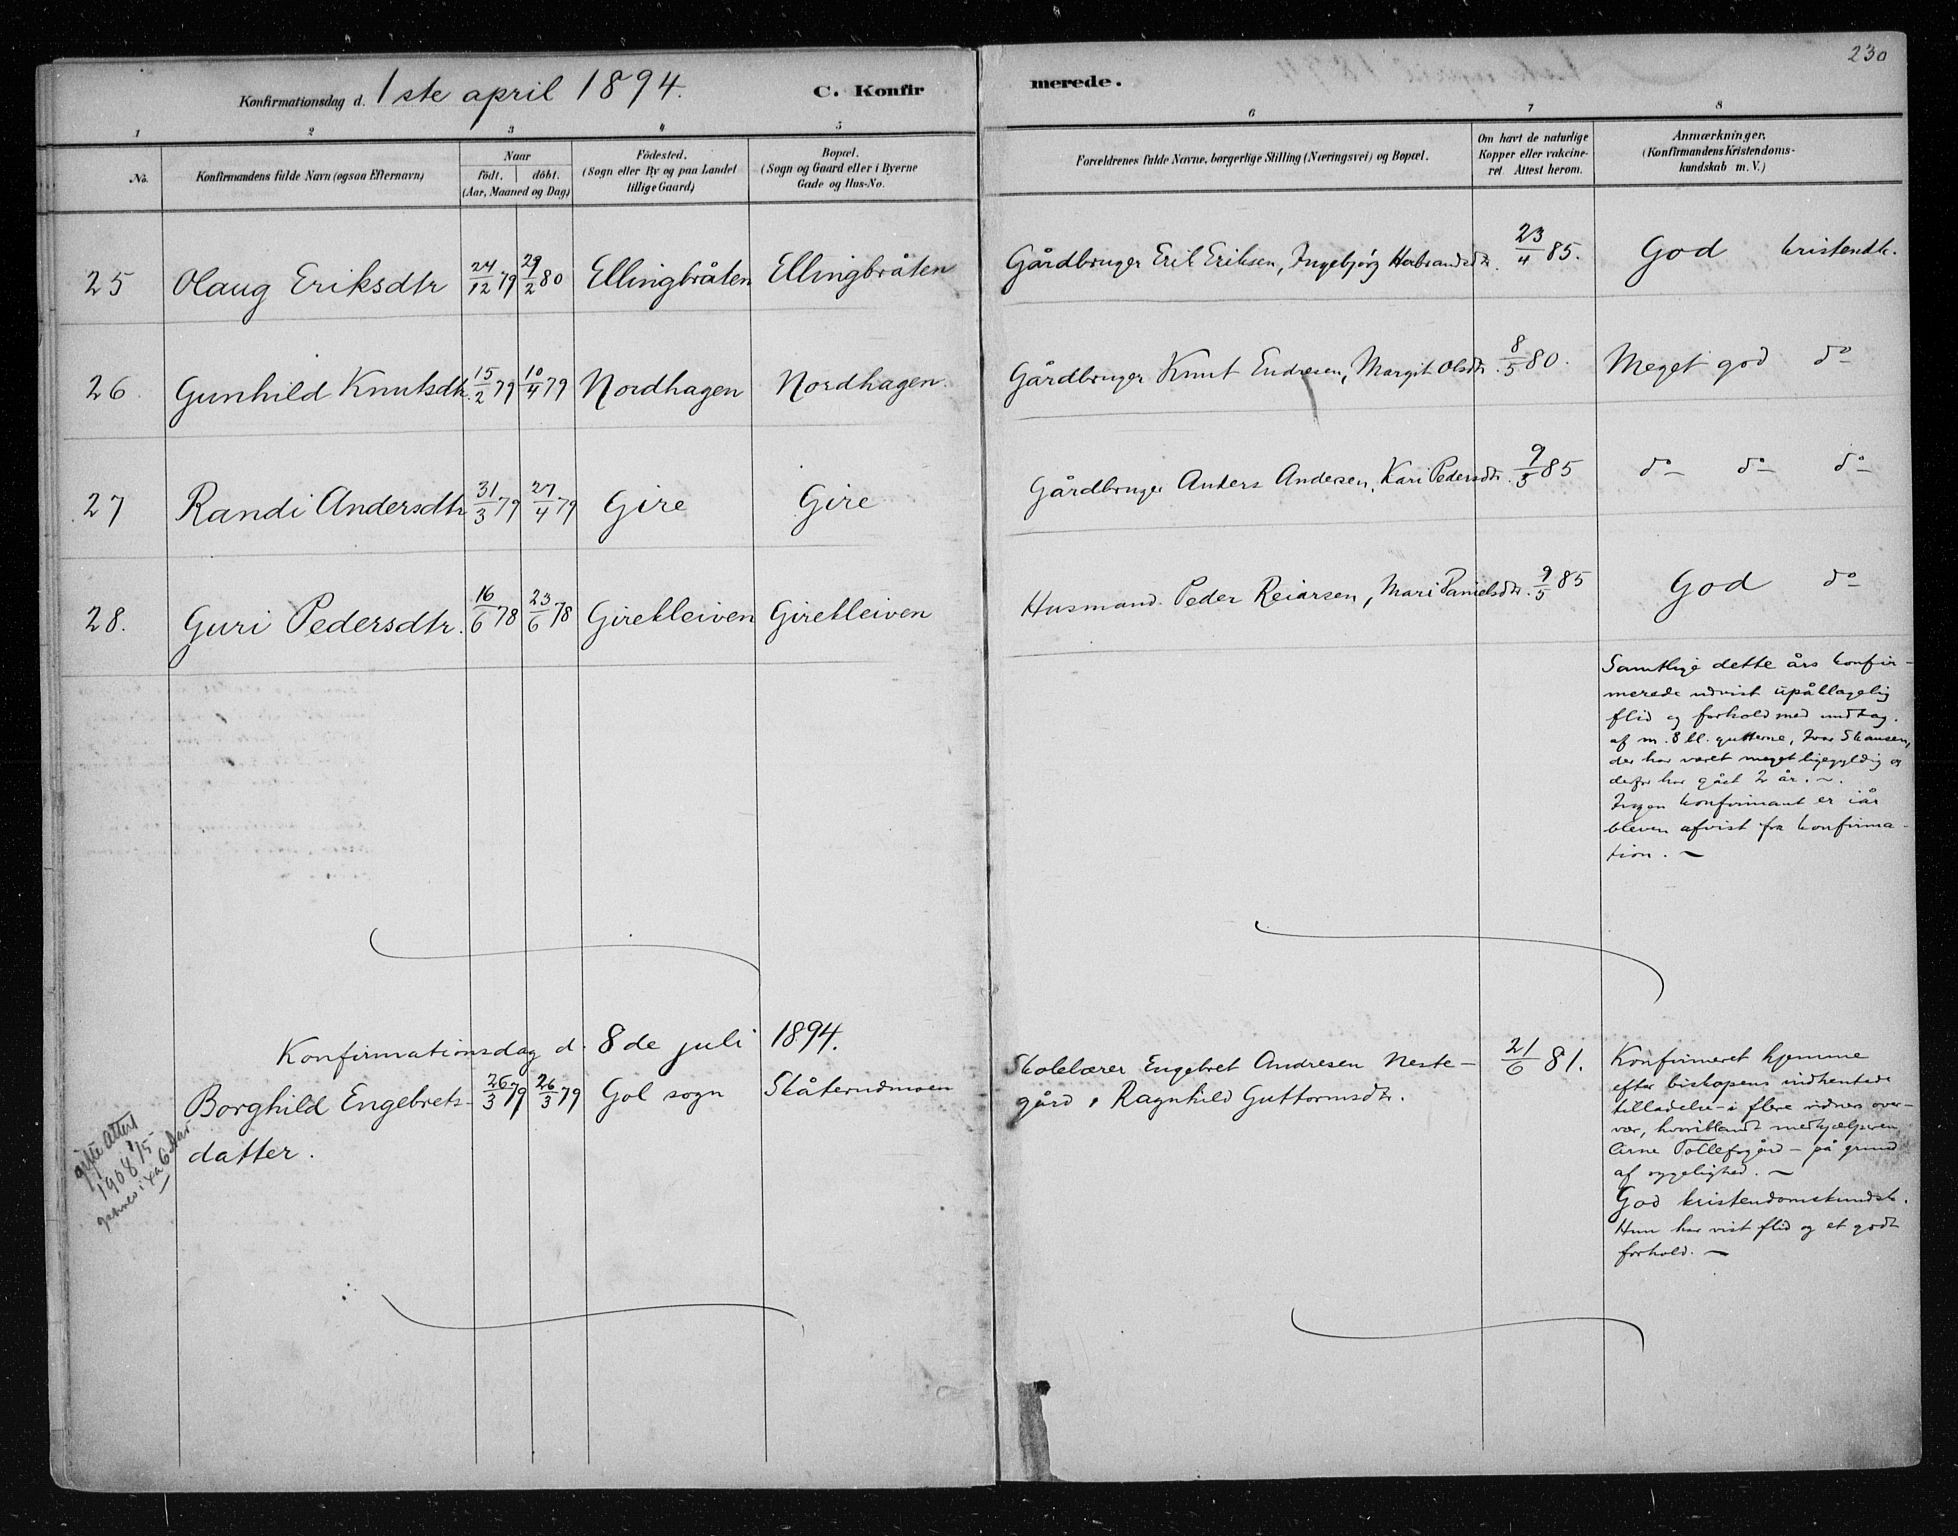 230
Konfirmationsdag d. 1ste april 1894. C. Konfirmerede.
1 2 3 4 5 6 7 8
No. Konfirmandens fulde Navn (ogsaa Efternavn) Naar födt. döbt. (Aar, Maaned og Dag) Födested. (Sogn eller By og paa Landet tillige Gaard) Bopæl. (Sogn og Gaard eller i Byerne Gade og Hus-No. Forældrenes fulde Navne, borgerlige Stilling (Næringsvei) og Bopæl. Om havt de naturlige Kopper eller vakcineret Attest herom. Anmærkninger. (Konfirmandens Kristendomskundskab m. V.)
25 Olaug Eriksdtr 24/12 79 29/2 80 Ellingbråten Ellingbråten Gårdbruger Erik Eriksen, Ingebjørg Herbrandsdtr. 23/4 85. God kristendk.
26. Gunhild Knutsdtr. 15/2 79 10/4 79 Nordhagen Nordhagen. Gårdbruger Knut Endresen, Margit Olsdtr. 8/5 80. Meget god do
27 Randi Andersdtr 31/3 79 27/4 79 Gire Gire Gårdbruger Anders Andersen, Kari Pedersdtr. 9/5 85 do do do
28. Guri Pedersdtr. 16/6 78 23/6 78 Girekleiven Girekleiven Husmand Peder Reiarsen, Mari Danielsdtr. 9/5 85 God do
Samtlige dette års konfir-
merede udvist upåklagelig
flid og forhold med undtag.
af n. 8 bl. gutterne, Ivar Skausen,
der har været meget ligegyldig og
derfor har gået 2 år. ~.
Ingen konfirmant er iår
bleven afvist fra konfirma-
tion. ~
Konfirmationsdag d. 8de juli 1894.
Borghild Engebrets- 26/3 79 26/3 79 Gol sogn Skåterudmoen Skolelærer Engebret Andresen Neste- 21/6 81.
datter. gård, Ragnhild Guttormsdtr.
Konfirmeret hjemme
efter biskopens indhentede
tilladelse i flere vidners over-
vær, hvoriblandt medhjælperen
Arne Tollefsgård – på grund
af sygelighed. ~
God kristendomskundsk.
Hun har vist flid og et godt
forhold. ~
gitt Attest
1908